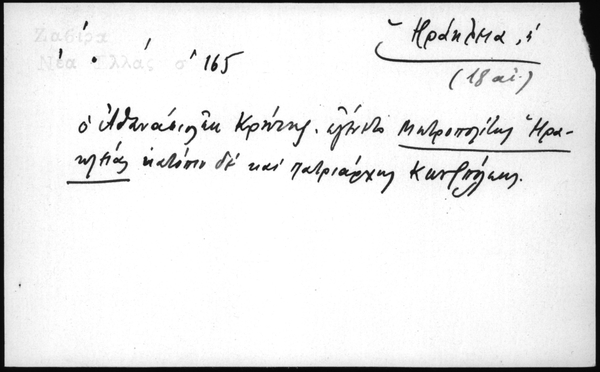 Ζαβίρα
Νέα Ἑλλάς σ 165
Ἡράκλεια, ἡ
(18 αἰ.)
ὁ Ἀθανάσιος ἐκ Κρήτης. ἐγένετο Μητροπολίτης Ἡρα-
κλείας κατόπιν δέ καί πατριάρχης Κων/πόλεως.